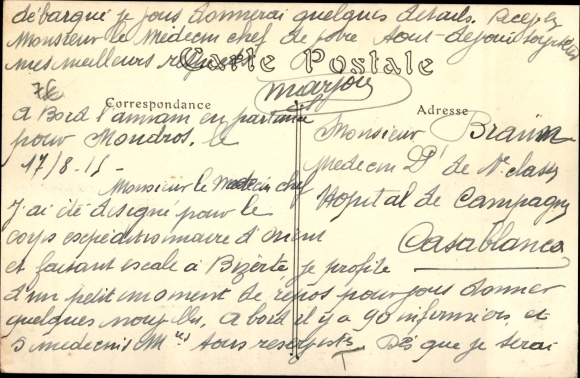 débarqué je vous donnerai quelques détails. Acceptez
Monsieur le Médecin chef de votre tout dejoué
mes meilleurs respects
Carte Postale
Marjou
Correspondance
Adresse
A Bord l'annam en partance
pour Moudros, le
17/8-15-
Monsieur le Medecin chef
J'ai été designé pour le
corps expéditionnaire d'orient
et faisant escale à Bizerte je profite
d'un petit moment de repos pour vous donner
quelques nouvelles. A bord il y a 90 infirmiers et
5 medecins Mres tous reservistes. Dès que je serai
Monsieur Braun
Medecin Pl de 1e classe
Hopital de Campagne
Casablanca